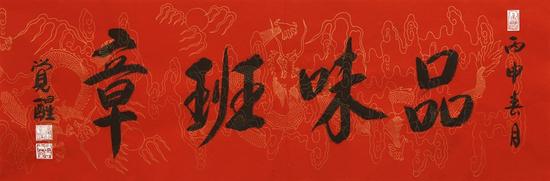 丙申春月
品味班章
觉醒